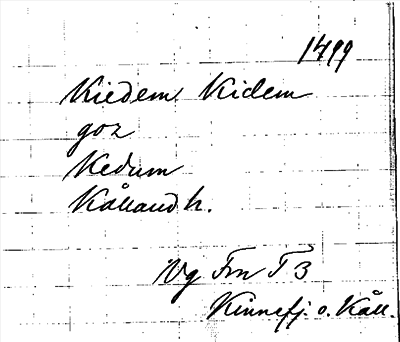 1499
Kiedem Kidem
goz
Kedum
Kålland h.
Vg Frn T 3
Kinnefj. o. Kåll.